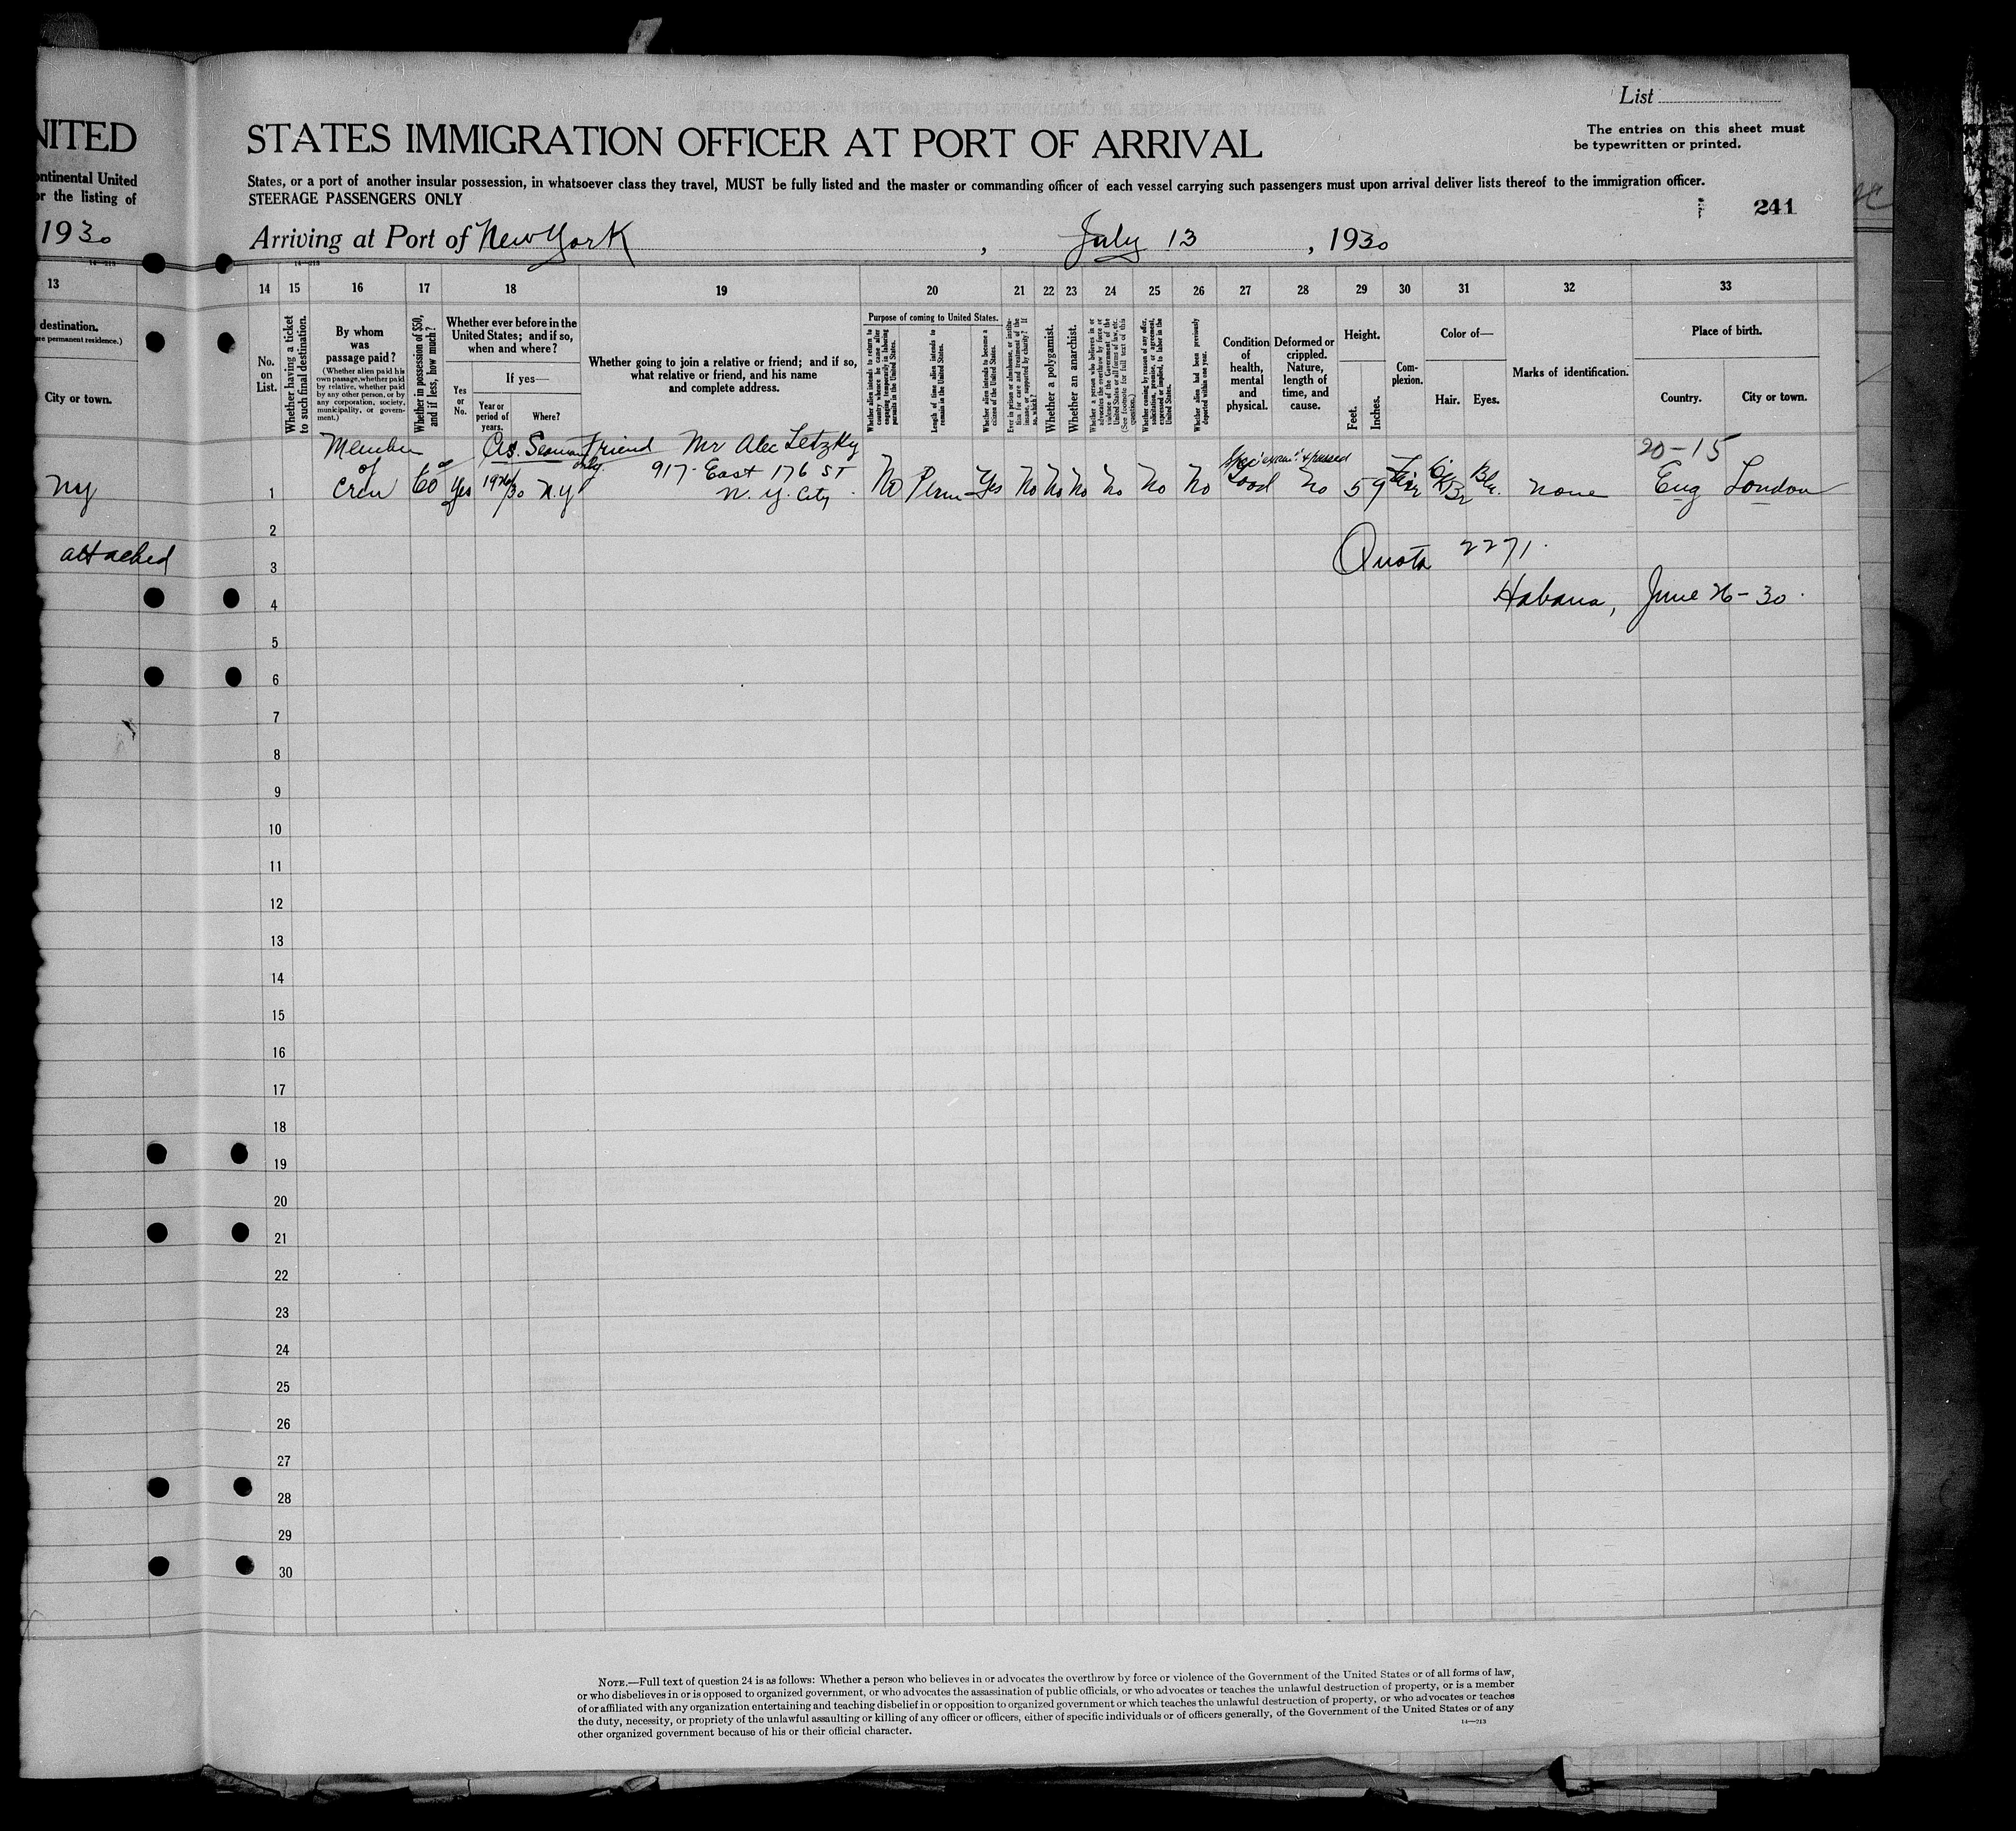 List
NITED
STATES IMMIGRATION OFFICER AT PORT OF ARRIVAL
The entries on this sheet must
be typewritten or printed.
ontinental United
or the listing of
States, or a port of another insular possession, in whatsoever class they travel, MUST be fully listed and the master or commanding officer of each vessel carrying such passengers must upon arrival deliver lists thereof to the immigration officer.
STEERAGE PASSENGERS ONLY
241
1930
Arriving at Port of New York, July 13, 1930
14—213
14—213
13 14 15 16 17 18 19 20 21 22 23 24 25 26 27 28 29 30 31 32 33
destination.
permanent residence.)
City or town.
No.
on
List.
Whether having a ticket
to such final destination.
By whom
was
passage paid?
(Whether alien paid his
own passage, whether paid
by relative, whether paid
by any other person, or by
any corporation, society,
municipality, or govern-
ment.)
Whether in possession of $50,
and if less, how much?
Whether ever before in the
United States; and if so,
when and where?
Yes
or
No.
If yes—
Year or
period of
years.
Where?
Whether going to join a relative or friend; and if so,
what relative or friend, and his name
and complete address.
Purpose of coming to United States.
Whether alien intends to return to
country whence he came after
engaging temporarily in laboring
pursuits in the United States.
Length of time alien intends to
remain in the United States.
Whether alien intends to become a
citizen of the United States.
Ever in prison or almshouse, or institu-
tion for care and treatment of the
insane, or supported by charity? If
so, which?
Whether a polygamist.
Whether an anarchist.
Whether a person who believes in or
advocates the overthrow by force or
violence of the Government of the
United States or all forms of law, etc.
(See footnote for full text of this
question.)
Whether coming by reason of any offer,
solicitation, promise, or agreement,
expressed or implied, to labor in the
United States.
Whether alien had been previously
deported within one year.
Condition
of
health,
mental
and
physical.
Deformed or
crippled.
Nature,
length of
time, and
cause.
Height.
Feet.
Inches.
Com-
plexion.
Color of—
Hair. Eyes.
Marks of identification.
Place of birth.
Country.
City or town.
Member As Seaman Friend Mr Alec Letzky 20-15
of only 917 East 176 ST
NY 1 Crew 60 00 Yes 1926/30 N.Y N. Y. City No Perm Yes No No No No No No Good No 5 9 Fair Dk Br Blu. none Eng London
2
attached
3 Quota 2271.
4 Habana, June 26-30.
5
6
7
8
9
10
11
12
13
14
15
16
17
18
19
20
21
22
23
24
25
26
27
28
29
30
NOTE.—Full text of question 24 is as follows: Whether a person who believes in or advocates the overthrow by force or violence of the Government of the United States or of all forms of law,
or who disbelieves in or is opposed to organized government, or who advocates the assassination of public officials, or who advocates or teaches the unlawful destruction of property, or is a member
of or affiliated with any organization entertaining and teaching disbelief in or opposition to organized government or which teaches the unlawful destruction of property, or who advocates or teaches
the duty, necessity, or propriety of the unlawful assaulting or killing of any officer or officers, either of specific individuals or of officers generally, of the Government of the United States or of any
other organized government because of his or their official character.
14—213